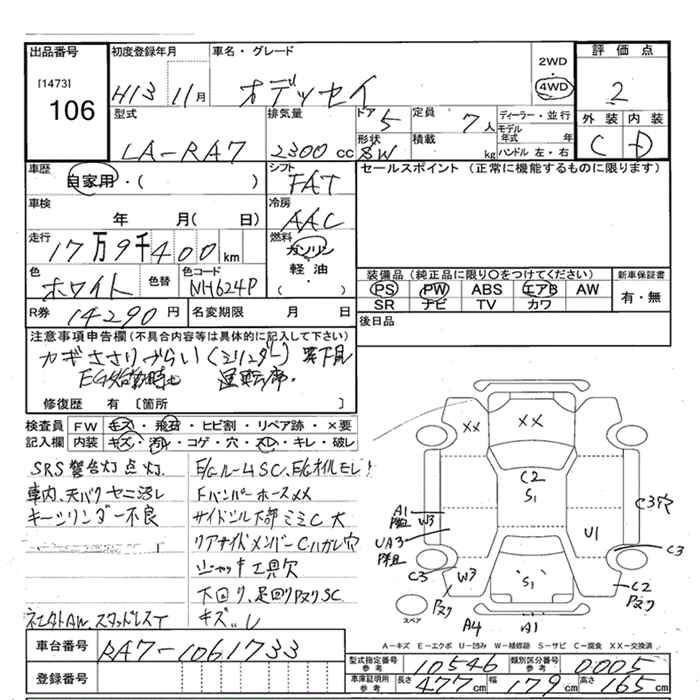 出品番号 初度登録年月 車名・グレード 2WD 4WD 評価点
[1473]
106
H13 11月 オデッセイ 2
型式 排気量 ドア 5 定員 7人 ディーラー・並行 外装 内装
LA-RA7 2300cc 形状 SW 積載 kg モデル年式 年 C D
ハンドル 左・右
車歴 自家用・( ) シフト FAT セールスポイント (正常に機能するものに限ります)
車検 年 月( 日) 冷房 AAC
走行 17万9千400km 燃料 ガソリン 軽油・( )
装備品(純正品に限り○をつけてください) 新車保証書
色 ホワイト 色替 色コード NH624P
PS PW ABS エアB AW 有・無
SR ナビ TV カワ
R券 14290円 名変期限 月 日 後日品
注意事項申告欄(不具合内容等は具体的に記入して下さい)
カギささりづらい(シリンダー)
EG始動時 運転席
修復歴 有 [箇所 ]
検査員 FW キズ・飛石・ヒビ割・リペア跡・×要
記入欄 内装 キズ・汚れ・コゲ・穴・スレ・キレ・破レ
SRS警告灯点灯 E/GルームSC、E/Gオイルモレ
車内、天バリ ヤニ汚レ Fバンパーホースメメ
キーシリンダー不良 サイドシル下部ミミC大
リアサイドメンバーCハガレ穴
ジャッキ工具欠
下回り、足回りPスリSC
社外AW、スタッドレスT キズ
XX XX
C2
S1
A1 W3 C3穴
UA3 U1
C3 C3
W3 S1 C2
スペア
A4 A1
A-キズ E-エクボ U-凹み W-補修跡 S-サビ C-腐食 XX-交換済
車台番号 RA7-1061733
登録番号
型式指定番号 参考 10546 類別区分番号 参考 0005
車庫証明用 参考 長さ 477cm 幅 179cm 高さ 165cm